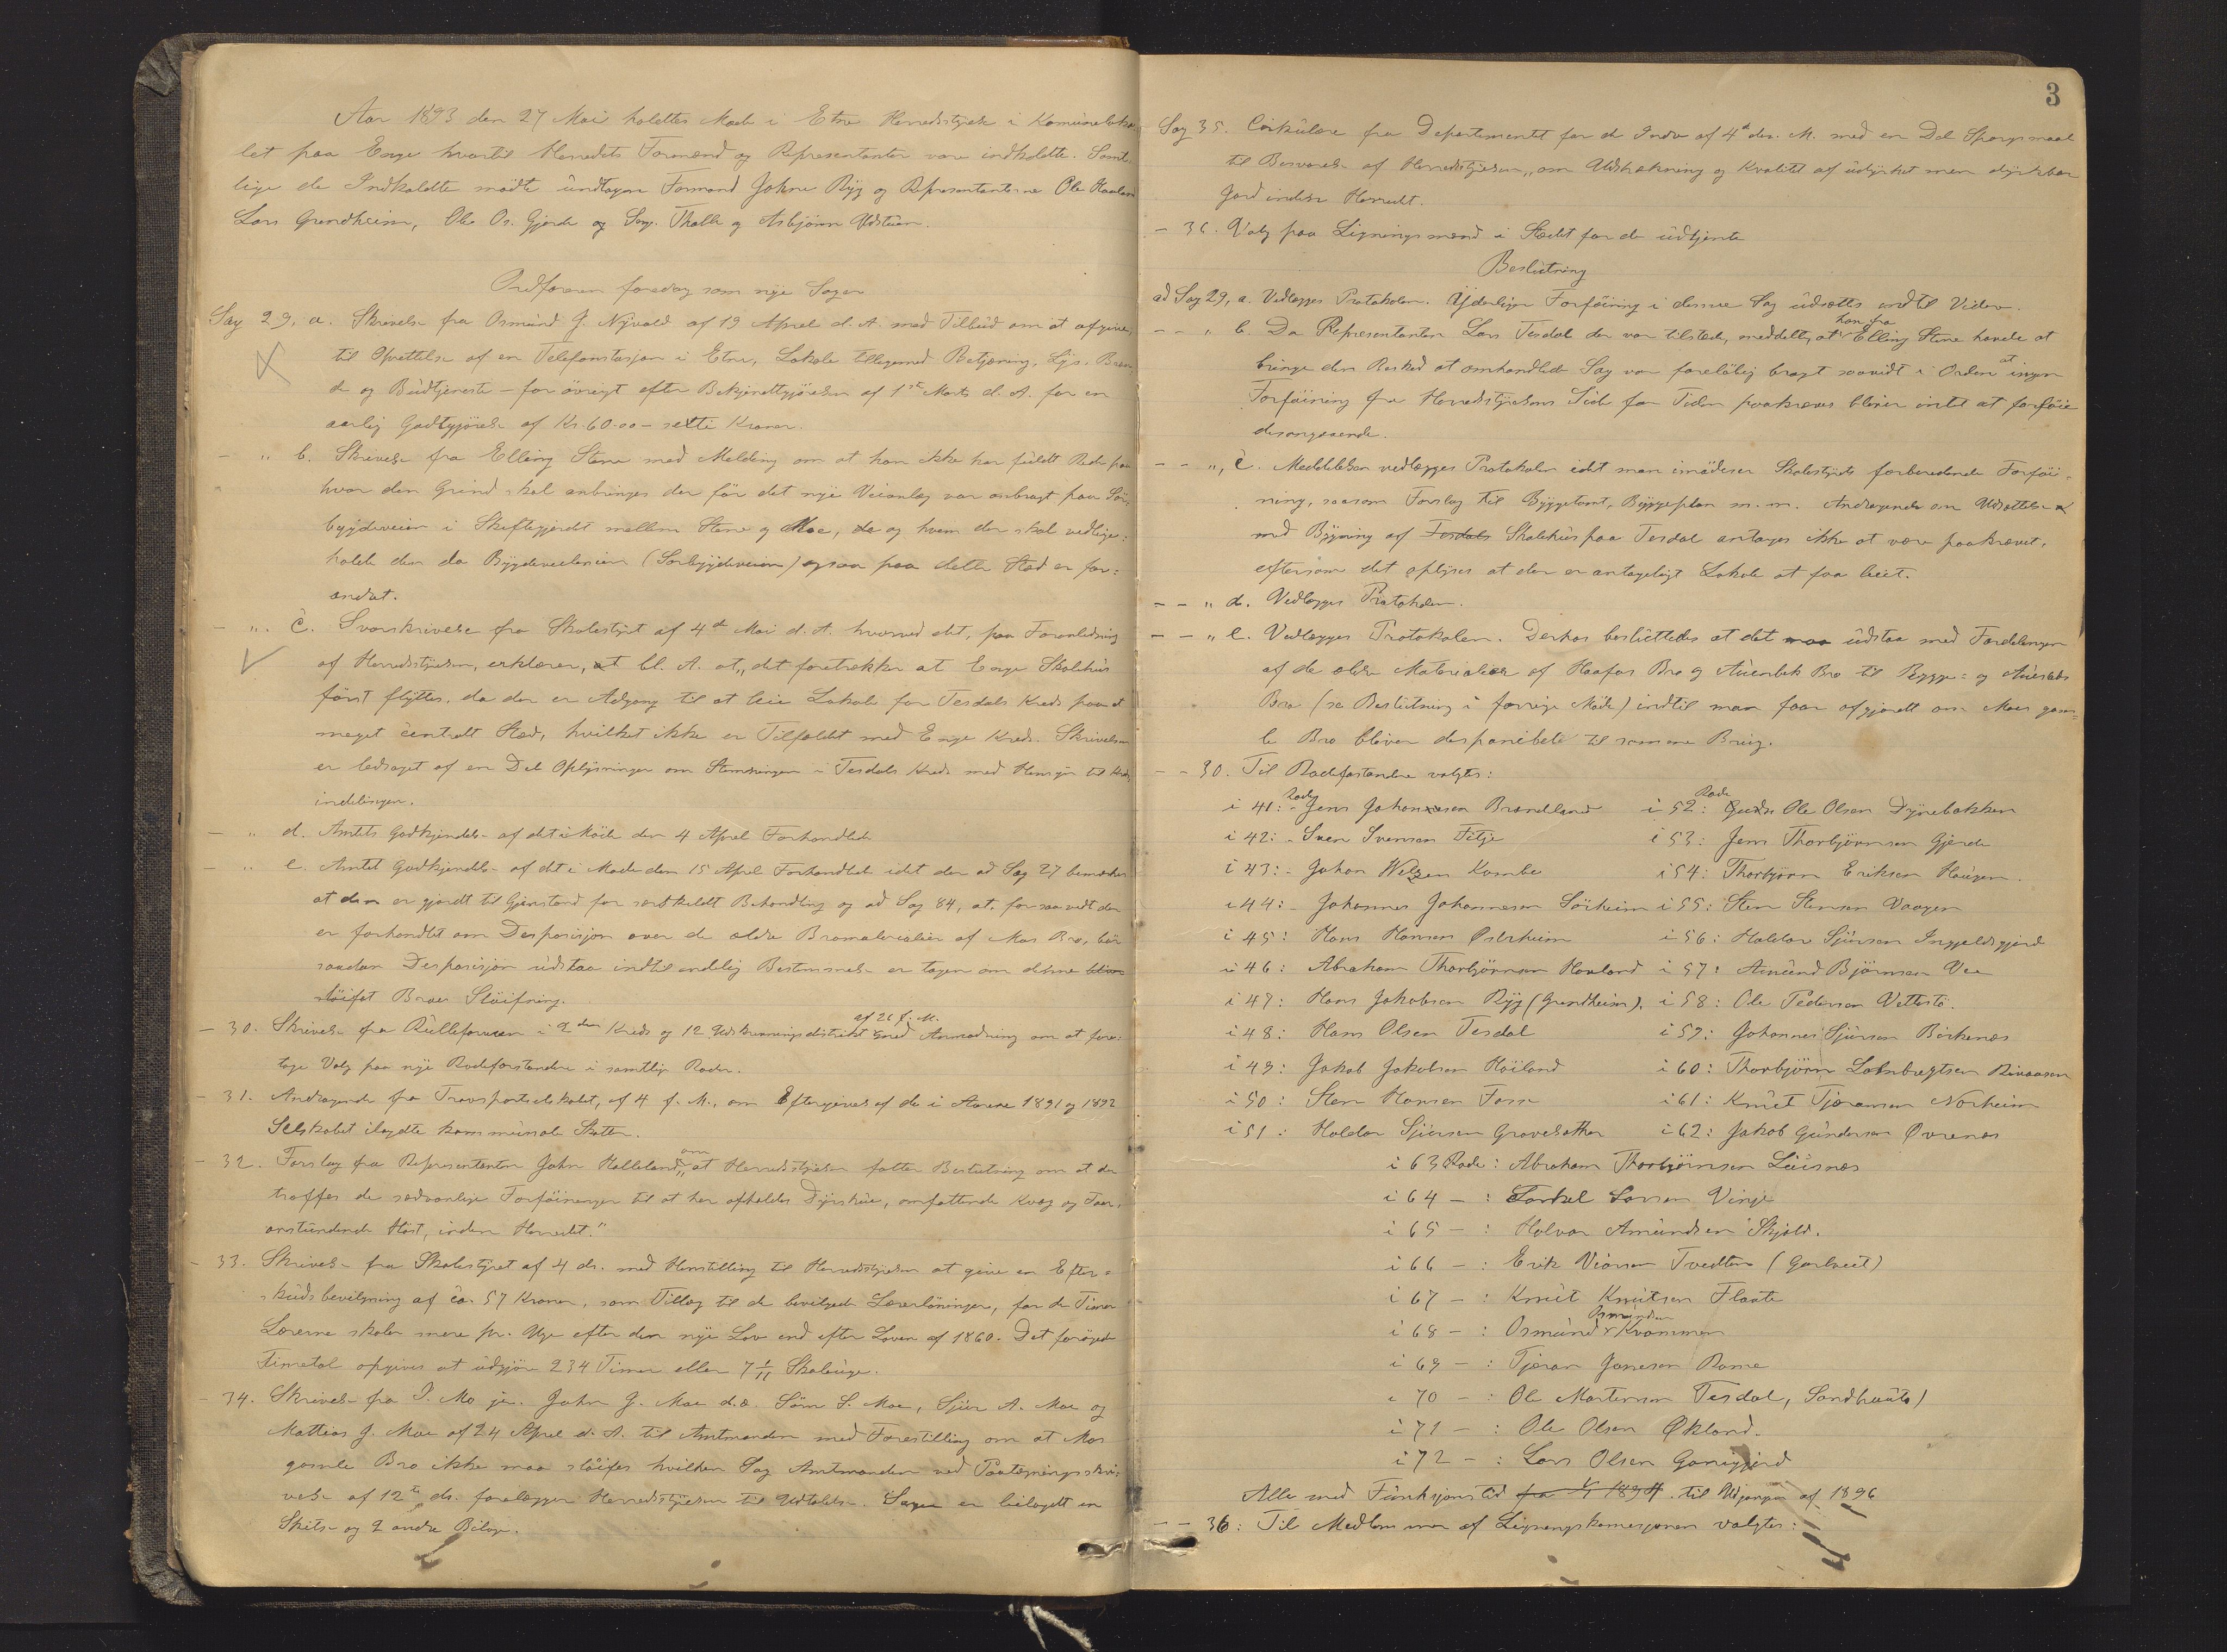 Aar 1893 den 27 Mai holdtes Møde i Etne Herredsstyrelse i Komuneloka
let paa Enge hvortil Herredets Formænd og Repræsentanter vare indkaldte. Samt
lige de Indkaldte mødte undtagen Formand Johne Ryg og Repræsentanterne Ole Haaland
Lars Grendheim, Ole Os. Gjerde og Thalle og Asbjørn Østeim.
Ordføreren foredrog som nye Sager
Sag 29, a. Skrivelse fra Osmund G. Nyvold af 19 April d. A. med Tilbud om at afgive,
til Oprettelse af en Telefonstasjon i Etne, Lokale tilligemed Betjening, Lys, Bræn
de og Budtjeneste – for øvrigt efter Bekjendtgjørelsen af 1ste Marts d. A. for en
aarlig Godtgjørelse af Kr. 60.00 – setti Kroner.
– " b. Skrivelse fra Elling Stene med Melding om at han ikke har fuldt Rede paa
hvor den Grind skal anbringes der før det nye Veianlæg var anbragt paa Sør-
bygdeveien i Skiftegjerdet mellem Stene og Moe, da og hvem der skal vedlige:
holde den da Bygdeveilinien (Sørbygdeveien) ogsaa paa dette Sted er for:
andret.
– ". c. Svarskrivelse fra Skolestyret af 4de Mai d. A. hvorved det, paa Foranledning
af Herredsstyrelsen, erklærer, at bl. A. at "det foretrækker at Enge Skolehus
først flyttes, da der er Adgang til at leie Lokale for Tesdals Kreds paa et
meget centralt Sted, hvilket ikke er Tilfældet med Enge Kreds. Skrivelsen
er ledsaget af en Del Oplysninger om Stemningen i Tesdals Kreds med Hensyn til Kreds
indelingen.
– " d. Amtets Godkjendelse af det i Møde den 4 April Forhandlede
– " e. Amtets Godkjendelse af det i Møde den 15 April Forhandlede idet der ad Sag 27 bemærkes
at den er gjordt til Gjenstand for særskildt Behandling og ad Sag 84, at, forsaavidt der
er forhandlet om Desposisjon over de ældre Bromaterialier af Moes Bro, bør
saadan Desposisjon udstaa indtil endelig Bestemmelse er tagen om denne bliver
sløifet Broes Sløifning.
– 30. Skrivelse fra Rulleføreren i 2den Kreds og 12 Udskrivningsdistrikt af 26 f. M. med Anmodning om at fore:
tage Valg paa nye Rodeforstandere i samtlige Roder.
– 31. Andragende fra Transportselskabet, af 4 f. M., om Eftergivelse af de i Aarene 1891 og 1892
Selskabet ilagdte kommunale Skatter.
– 32. Forslag fra Repræsentanten John Halleland, om "at Herredsstyrelsen fatter Beslutning om at der
træffes de sædvanlige Forføininger til at her afholdes Dyrskue, omfattende Kvæg og Faar,
anstundende Høst, inden Herredet."
– 33. Skrivelse fra Skolestyret af 4 ds. med Henstilling til Herredsstyrelsen at give en Efter=
skudsbevilgning af ca 57 Kroner, som Tillæg til de bevilgede Lærerlønninger, for de Timer
Lærerne skoler mere pr. Uge efter den nye Lov end efter Loven af 1860. Det forøgede
Timetal opgives at udgjøre 234 Timer eller 7 1/11 Skoleuge.
– 34. Skrivelse fra I. Mo jr. John G. Moe d.æ. Søren S. Moe, Sjur A. Moe og
Mattias G. Moe af 24 April d. A. til Amtmanden med Forestilling om at Moes
gamle Bro ikke maa sløifes hvilken Sag Amtmanden ved Paategningsskri=
velse af 12te ds. forelægger Herredsstyrelsen til Udtalelse. Sagen er bilagdt en
Skitse og 2 andre Bilage.
3
Sag 35. Cirkulære fra Departementet for det Indre af 4de ds. M. med en Del Spørgsmaal
til Besvarelse af Herredsstyrelsen, "om Udstrækning og Kvalitet af udyrket men dyrkbar
Jord inden Herredet.
– 36. Valg paa Ligningsmænd i Stedet for de udtjente
Beslutning
ad Sag 29, a. Vedlægges Protokolen. Yderligere Forføining i denne Sag udsættes indtil Videre.
– – " b. Da Repræsentanten Lars Tesdal der var tilstede, meddelte, at han fra Elling Stene havde at
bringe den Besked at omhandlede Sag var foreløbig bragt saavidt i Orden at ingen
Forføining fra Herredsstyrelsens Side for Tiden paakræves bliver intet at forføie
desangaaende.
– – ", c. Meddelelsen vedlægges Protokolen idet man imødeser Skolestyrets forberedende Forføi=
ning, saasom Forslag til Byggetomt, Byggeplan m. m. Andragende om Udsættelse
med Bygning af Tesdals Skolehus paa Tesdal antages ikke at være paakrævet,
eftersom det oplyses at der er antageligt Lokale at faa leiet.
– – " d. Vedlægges Protokolen.
– – " e. Vedlægges Protokolen. Derhos besluttedes at det maa udstaa med Fordelingen
af de ældre Materialier af Haafos Bro og Auenbek Bro til Bygge= og Auestads
Bro (se Beslutning i forrige Møde) indtil man faar afgjordt om Moes gam=
le Bro bliver desponibelt til samme Brug.
– – 30. Til Rodeforstandere valgtes:
i 41: Rode Jens Johannesen Brændeland i 52: Rode Ole Olsen Dynebakken
i 42: – Sven Svensen Fitje i 53: Jens Thorbjørnsen Gjerde
i 43: – Johan Nilsen Kambe i 54: Thorbjørn Eriksen Haugen.
i 44: – Johannes Johannesen Sørheim i 55: Sten Stensen Vaagen
i 45: Hans Hansen Østrheim i 56: Haldor Sjursen Ingjeldsgjerd
i 46: Abraham Thorbjørnsen Havland i 57: Amund Bjørnsen Vee
i 47: Hans Jakobsen Ryg (Grendheim). i 58: Ole Pedersen Vettestø.
i 48: Hans Olsen Tesdal i 59: Johannes Sjursen Birkenes
i 49: Jakob Jakobsen Høiland i 60: Thorbjørn Lambregtsen Rivaasen
i 50: Sten Hansen Fosse i 61: Knut Tjeransen Norheim
i 51: Haldor Sjursen Gravelsæther i 62: Jakob Gundersen Øvrenes
i 63 Rode: Abraham Thorbjørnsen Lausnes
i 64 – : Torkel Larsen Vinje
i 65 – : Halvor Amundsen Skjold.
i 66 – : Erik Viersen Tvedten (Gartveit)
i 67 – : Knut Knutsen Flaate
i 68 – : Osmund Osmundsen Kvammen
i 69 – : Tjeran Jansen Rame
i 70 – : Ole Mortensen Tesdal, Sandhaula)
i 71 – : Ole Olsen Økland.
i 72 – : Lars Olsen Gamigjerd
Alle med Funksjonstid fra 1/1 1894 til Udgangen af 1896
– – 36: Til Medlemmer af Ligningskomisjonen valgtes: